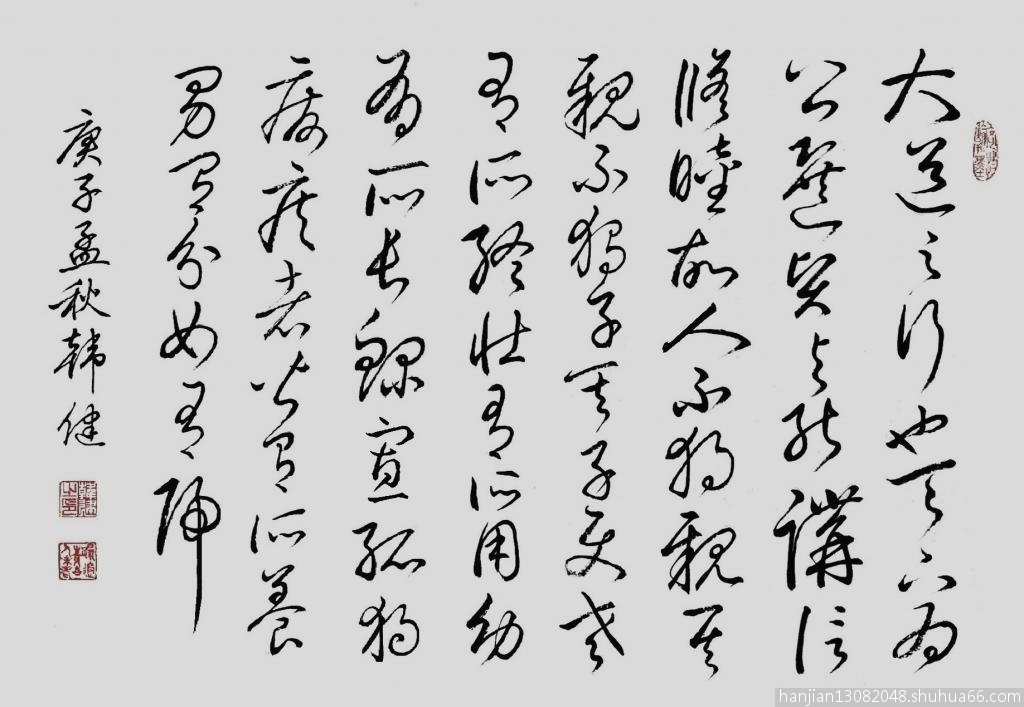 大道之行也天下為
公選賢與能講信
修睦故人不獨親其
親不獨子其子使老
有所終壯有所用幼
有所長鰥寡孤獨
廢疾者皆有所養
男有分女有歸
庚子孟秋韓健
hanjian13082048.shuhua66.com